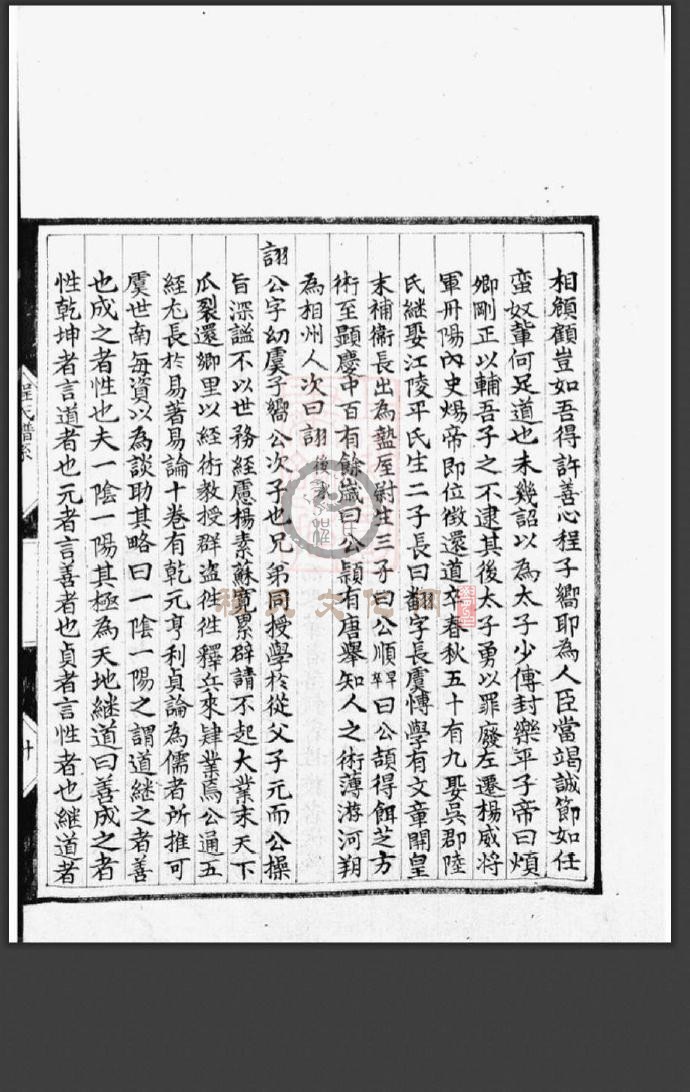 相頋顧豈如吾得許善心程子嚮耶為人臣當竭誠節如任
蛮奴軰何足道也未幾詔以為太子少傅封樂平子帝曰煩
卿剛正以輔吾子之不逮其後太子勇以罪廢左遷楊威將
軍丹陽內史煬帝即位徵還道卒春秋五十有九娶吳郡陸
氏継娶江陵平氏生二子長曰翻字長虞愽學有文章開皇
末補衛長出為盩厔尉生三子曰公順早卒曰公頡得餌芝方
術至顯慶中百有餘歲曰公顥有唐舉知人之術薄游河朔
為相州人次曰詡後
詡公字幼虞子嚮公次子也兄弟同授學於從父子元而公操
旨深謐不以世務経慮楊素蘇寛累辟請不起大業末天下
瓜裂還鄉里以経術教授群盗徃徃釋兵來肄業焉公通五
経尤長於易著易論十卷有乾元亨利貞論為儒者所推可
虞世南每資以為談助其略曰一陰一陽之謂道継之者善
也成之者性也夫一陰一陽其極為天地継道曰善成之者
性乾坤者言道者也元者言善者也貞者言性者也継道者
程氏譜系
程氏文化網